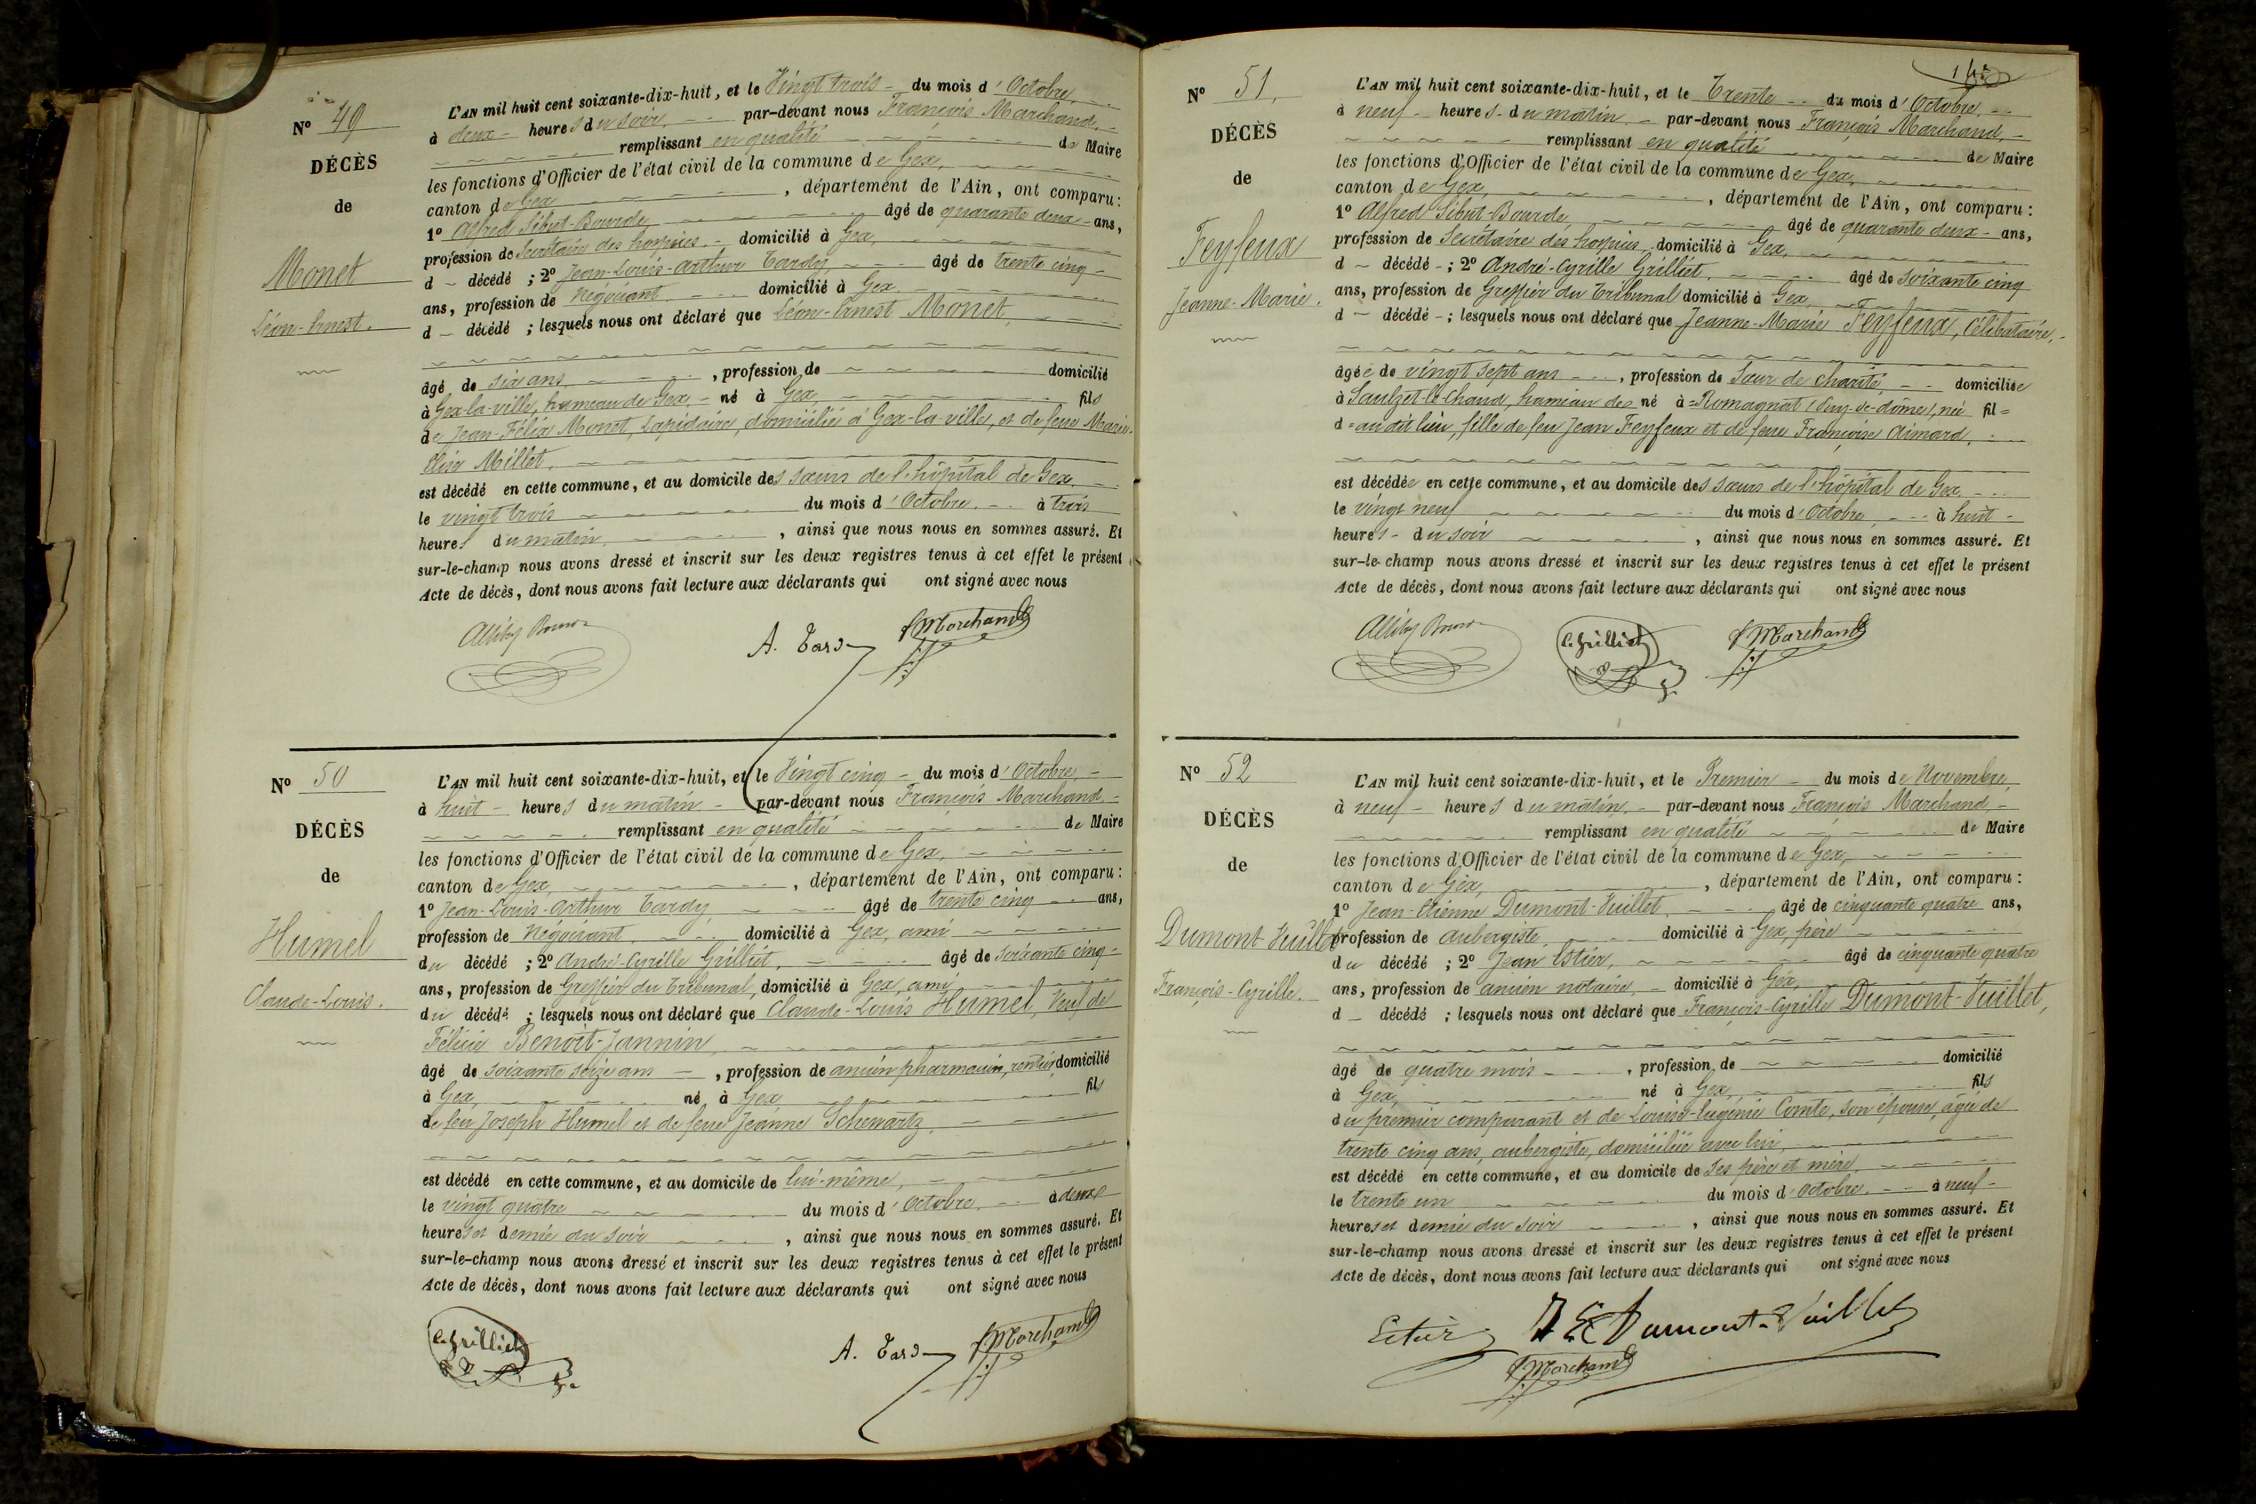 N° 49
DÉCÈS
de
Monet
Léon-Ernest.
L'AN mil huit cent soixante-dix-huit, et le Vingt trois du mois d'Octobre,
à deux heures du soir, par-devant nous François Marchand,
remplissant en qualité de Maire
les fonctions d'Officier de l'état civil de la commune de Gex,
canton de Gex, département de l'Ain, ont comparu :
1° Alfred Sibut-Bourde âgé de quarante deux ans,
profession de Secrétaire des hospices, domicilié à Gex,
d décédé ; 2° Jean-Louis-Arthur Tardy, âgé de trente cinq
ans, profession de Négociant domicilié à Gex
d décédé ; lesquels nous ont déclaré que Léon-Ernest Monet,
âgé de six ans, profession de domicilié
à Gex-la-ville, hameau de Gex, né à Gex, fils
de Jean-Félix Monet, Lapidaire, domicilié à Gex-la-ville, et de feue Marie-
Elisa Millet,
est décédé en cette commune, et au domicile des sœurs de l'hôpital de Gex,
le vingt trois du mois d'Octobre, à trois
heures du matin, ainsi que nous nous en sommes assuré. Et
sur-le-champ nous avons dressé et inscrit sur les deux registres tenus à cet effet le présent
Acte de décès, dont nous avons fait lecture aux déclarants qui ont signé avec nous
A. Tardy
F Marchand
N° 50
DÉCÈS
de
Humel
Claude-Louis.
L'AN mil huit cent soixante-dix-huit, et le Vingt cinq du mois d'Octobre,
à huit heures du matin par-devant nous François Marchand
remplissant en qualité de Maire
les fonctions d'Officier de l'état civil de la commune de Gex,
canton de Gex, département de l'Ain, ont comparu :
1° Jean-Louis-Arthur Tardy, âgé de trente cinq ans,
profession de Négociant, domicilié à Gex, ami
du décédé ; 2° André-Cyrille Grilliet, âgé de soixante cinq
ans, profession de Greffier du Tribunal, domicilié à Gex, ami
du décédé ; lesquels nous ont déclaré que Claude-Louis Humel, Veuf de
Félicie Benoît-Jannin,
âgé de soixante seize ans, profession de ancien pharmacien, rentier, domicilié
à Gex, né à Gex fils
de feu Joseph Humel et de feue Jeanne Schewartz,
est décédé en cette commune, et au domicile de lui-même,
le vingt quatre du mois d'Octobre, à deux
heures et demie du soir, ainsi que nous nous en sommes assuré. Et
sur-le-champ nous avons dressé et inscrit sur les deux registres tenus à cet effet le présent
Acte de décès, dont nous avons fait lecture aux déclarants qui ont signé avec nous
C. Grilliet
A. Tardy
F Marchand
N° 51.
DÉCÈS
de
Feyfeux
Jeanne-Marie.
L'AN mil huit cent soixante-dix-huit, et le Trente du mois d'Octobre,
à neuf heures du matin, par-devant nous François Marchand,
remplissant en qualité de Maire
les fonctions d'Officier de l'état civil de la commune de Gex,
canton de Gex, département de l'Ain, ont comparu :
1° Alfred Sibut-Bourde âgé de quarante deux ans,
profession de Secrétaire des hospices, domicilié à Gex,
d décédé ; 2° André-Cyrille Grilliet, âgé de soixante cinq
ans, profession de Greffier du Tribunal domicilié à Gex
d décédé ; lesquels nous ont déclaré que Jeanne-Marie Feyfeux, célibataire,
âgée de vingt sept ans, profession de Sœur de charité, domiciliée
à Saulzet-le-Chaud, hameau de né à Romagnat (Puy-de-dôme), née fil
d audit lieu, fille de feu Jean Feyfeux et de feue Françoise Aimard,
est décédée en cette commune, et au domicile des sœurs de l'hôpital de Gex,
le vingt neuf du mois d'Octobre à huit
heures du soir, ainsi que nous nous en sommes assuré. Et
sur-le-champ nous avons dressé et inscrit sur les deux registres tenus à cet effet le présent
Acte de décès, dont nous avons fait lecture aux déclarants qui ont signé avec nous
C. Grilliet
F Marchand
N° 52
DÉCÈS
de
Dumont Vuillet
François-Cyrille.
L'AN mil huit cent soixante-dix-huit, et le Premier du mois de Novembre,
à neuf heures du matin, par-devant nous François Marchand
remplissant en qualité de Maire
les fonctions d'Officier de l'état civil de la commune de Gex,
canton de Gex, département de l'Ain, ont comparu :
1° Jean-Etienne Dumont-Vuillet, âgé de cinquante quatre ans,
profession de Aubergiste, domicilié à Gex, père
du décédé ; 2° Jean Estier, âgé de cinquante quatre
ans, profession de ancien notaire, domicilié à Gex,
d décédé ; lesquels nous ont déclaré que François-Cyrille Dumont-Vuillet,
âgé de quatre mois, profession de domicilié
à Gex, né à Gex, fils
du premier comparant et de Louise-Eugénie Comte, son épouse, âgée de
trente cinq ans, aubergiste, domiciliée avec lui,
est décédé en cette commune, et au domicile de ses père et mère,
le trente un du mois d'Octobre, à neuf
heures et demie du soir, ainsi que nous nous en sommes assuré. Et
sur-le-champ nous avons dressé et inscrit sur les deux registres tenus à cet effet le présent
Acte de décès, dont nous avons fait lecture aux déclarants qui ont signé avec nous
Estier
J E Dumont-Vuillet
F Marchand